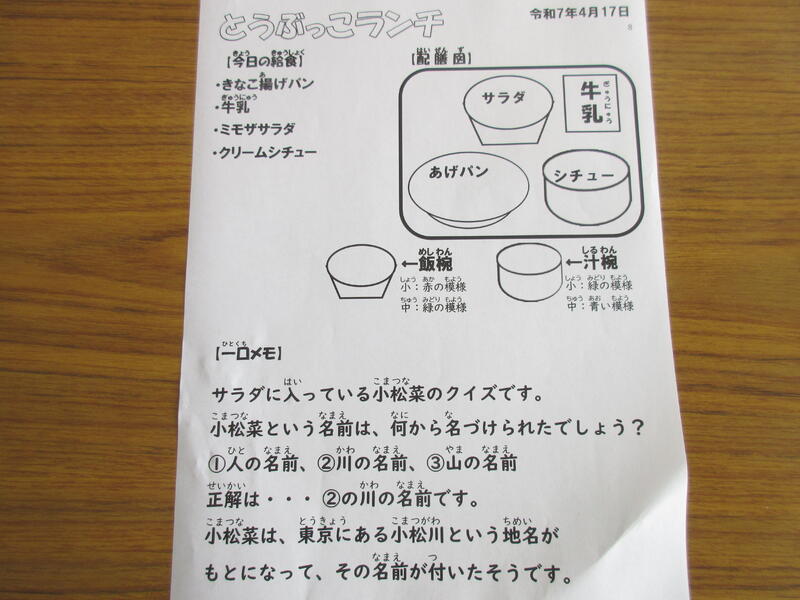 とうぶっこランチ
令和7年4月17日
8
【今日の給食】
・きなこ揚げパン
・牛乳
・ミモザサラダ
・クリームシチュー
【配膳図】
サラダ
牛乳
あげパン
シチュー
←飯椀
小：赤の模様
中：緑の模様
←汁椀
小：緑の模様
中：青い模様
【一口メモ】
サラダに入っている小松菜のクイズです。
小松菜という名前は、何から名づけられたでしょう？
①人の名前、②川の名前、③山の名前
正解は・・・②の川の名前です。
小松菜は、東京にある小松川という地名が
もとになって、その名前が付いたそうです。